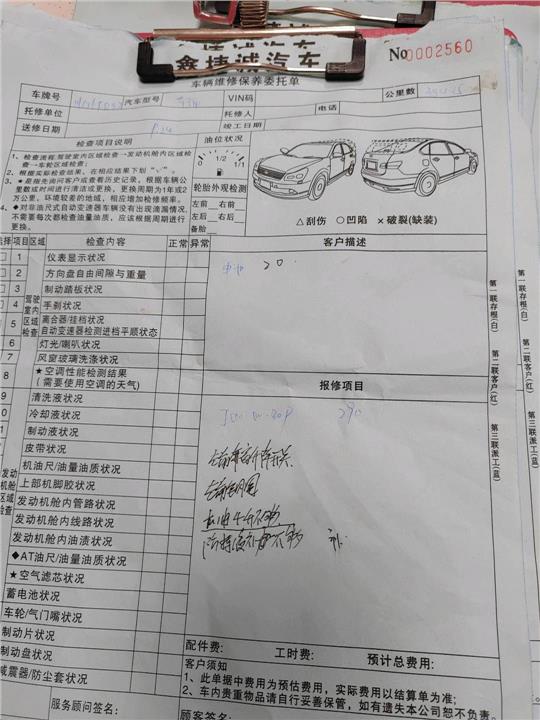 鑫捷诚汽车
No 0002560
车辆维修保养委托单
车牌号 汽车型号 VIN码 公里数
托修单位 托修人 电话
送修日期 竣工日期
检查项目说明
1、检查流程:驾驶室内区域检查→发动机舱内区域检查→车轮区域检查;
2、根据实际检查结果,在相应结果下划“√”。
3、★是指先询问客户或查看历史记录,根据车辆公里数或时间进行清洁或更换,更换周期为1年或2万公里,环境较差的地域,相应增加检修频率。
◆对非油尺式自动变速器车辆没有出现滴漏情况,不需要每次都检查油量油质,应该根据周期进行更换。
油位状况
0 1/2 1/1
轮胎外观检测
左前 右前
左后 右后
备胎
△刮伤 ○凹陷 ×破裂(缺装)
选择 项目 区域 检查内容 正常 异常
客户描述
20
驾驶室内区域检查
1 仪表显示状况
2 方向盘自由间隙与重量
3 制动踏板状况
4 手刹状况
5 离合器/挂档状况
自动变速器检测进档平顺状态
6 灯光/喇叭状况
7 风窗玻璃洗涤状况
8 ★空调性能检测结果
(需要使用空调的天气)
报修项目
290
发动机舱区域检查
9 清洗液状况
0 冷却液状况
制动液状况
皮带状况
机油尺/油量油质状况
上部机脚胶状况
发动机舱内管路状况
发动机舱内线路状况
发动机舱内油渍状况
◆AT油尺/油量油质状况
★空气滤芯状况
蓄电池状况
车轮/气门嘴状况
制动片状况
制动盘状况
减震器/防尘套状况
第一联存根(白)
第二联客户(红)
第三联派工(蓝)
第一联存根(白)
第二联客户(红)
第三联派工(蓝)
配件费: 工时费: 预计总费用:
客户须知
1、此单据中费用为预估费用,实际费用以结算单为准;
2、车内贵重物品请自行妥善保管,如有遗失本公司恕不负责。
服务顾问签名: 顾客签名: